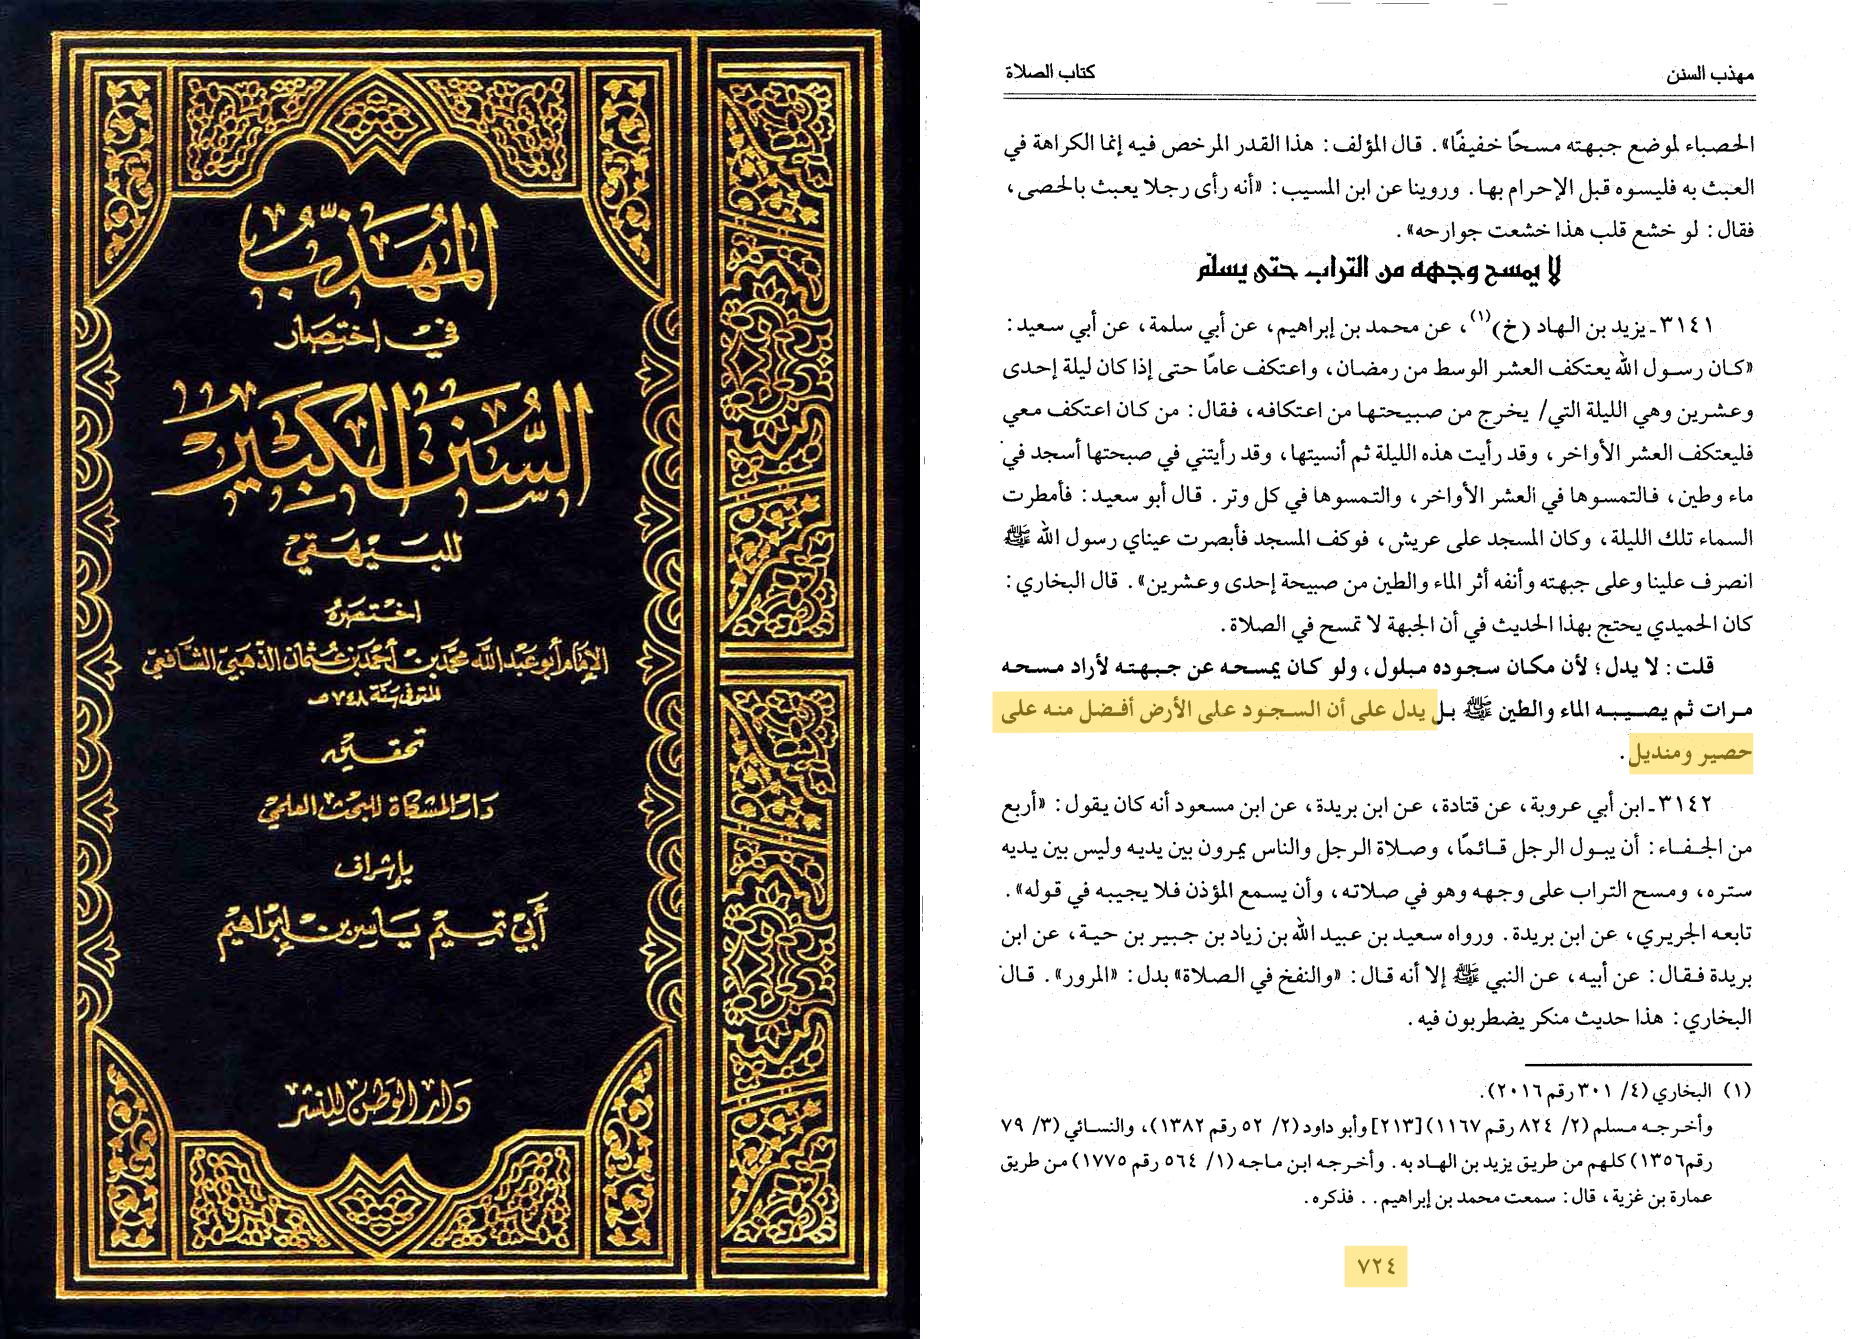 المهذب
في اختصار
السنن الكبير
للبيهقي
اختصره
الإمام أبو عبد الله محمد بن أحمد بن عثمان الذهبي الشافعي
المتوفى سنة ٧٤٨ هـ
تحقيق
دار المشكاة للبحث العلمي
بإشراف
أبي تميم ياسر بن إبراهيم
دار الوطن للنشر
مهذب السنن كتاب الصلاة
الحصباء لموضع جبهته مسحًا خفيفًا». قال المؤلف: هذا القدر المرخص فيه إنما الكراهة في
العبث به فليسوه قبل الإحرام بها. وروينا عن ابن المسيب: «أنه رأى رجلا يعبث بالحصى،
فقال: لو خشع قلب هذا خشعت جوارحه».
لا يمسح وجهه من التراب حتى يسلّم
٣١٤١ـ يزيد بن الهاد (خ)(١)، عن محمد بن إبراهيم، عن أبي سلمة، عن أبي سعيد:
«كان رسول الله يعتكف العشر الوسط من رمضان، واعتكف عامًا حتى إذا كان ليلة إحدى
وعشرين وهي الليلة التي/ يخرج من صبيحتها من اعتكافه، فقال: من كان اعتكف معي
فليعتكف العشر الأواخر، وقد رأيت هذه الليلة ثم أنسيتها، وقد رأيتني في صبحتها أسجد في
ماء وطين، فالتمسوها في العشر الأواخر، والتمسوها في كل وتر. قال أبو سعيد: فأمطرت
السماء تلك الليلة، وكان المسجد على عريش، فوكف المسجد فأبصرت عيناي رسول الله ﷺ
انصرف علينا وعلى جبهته وأنفه أثر الماء والطين من صبيحة إحدى وعشرين». قال البخاري:
كان الحميدي يحتج بهذا الحديث في أن الجبهة لا تمسح في الصلاة.
قلت: لا يدل؛ لأن مكان سجوده مبلول، ولو كان يمسحه عن جبهته لأراد مسحه
مرات ثم يصيبه الماء والطين ﷺ بل يدل على أن السجود على الأرض أفضل منه على
حصير ومنديل.
٣١٤٢ـ ابن أبي عروبة، عن قتادة، عن ابن بريدة، عن ابن مسعود أنه كان يقول: «أربع
من الجفاء: أن يبول الرجل قائمًا، وصلاة الرجل والناس يمرون بين يديه وليس بين يديه
ستره، ومسح التراب على وجهه وهو في صلاته، وأن يسمع المؤذن فلا يجيبه في قوله».
تابعه الجريري، عن ابن بريدة. ورواه سعيد بن عبيد الله بن زياد بن جبير بن حية، عن ابن
بريدة فقال: عن أبيه، عن النبي ﷺ إلا أنه قال: «والنفخ في الصلاة» بدل: «المرور». قال
البخاري: هذا حديث منكر يضطربون فيه.
(١) البخاري (٤/ ٣٠١ رقم ٢٠١٦).
وأخرجه مسلم (٢/ ٨٢٤ رقم ١١٦٧) [٢١٣] وأبو داود (٢/ ٥٢ رقم ١٣٨٢)، والنسائي (٣/ ٧٩
رقم ١٣٥٦) كلهم من طريق يزيد بن الهاد به. وأخرجه ابن ماجه (١/ ٥٦٤ رقم ١٧٧٥) من طريق
عمارة بن غزية، قال: سمعت محمد بن إبراهيم.. فذكره.
٧٢٤